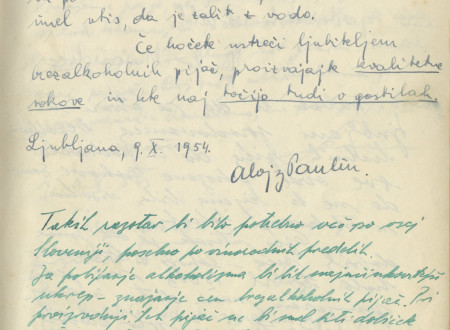 imel vtis, da je zalit z vodo.
Če hoček ustreči ljubiteljem
brezalkoholnih pijač, proizvajajte kvalitetne
sokove in te naj točijo tudi v gostilnah
Ljubljana, 9. X. 1954.
Alojz Paulin.
Takih razstav bi bilo potrebno več po vsej
Sloveniji, posebno po vinorodnih predelih.
Za pobijanje alkoholizma bi bil najučinkovitejši
ukrep - znižanje cen brezalkoholnih pijač. Pri
proizvodnji teh pijač ne bi smel biti dobiček